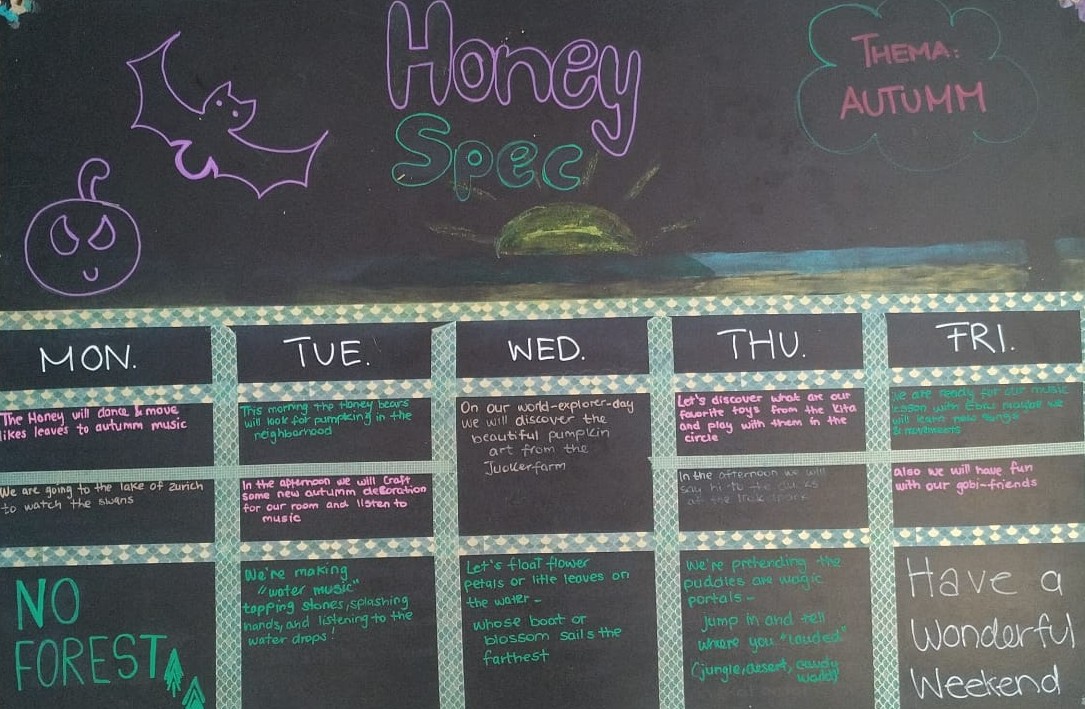 Honey
Spec
THEMA:
AUTUMM
MON.
TUE.
WED.
THU.
FRI.
The Honey will dance & move
likes leaves to autumm music
This morning the Honey bears
will look for pumpking in the
neighborhood
On our world-explorer-day
we will discover the
beautiful pumpkin
art from the
Juckerfarm
Let's discover what are our
favorite toys from the Kita
and play with them in the
circle
We are ready for our music
lesson with maybe we
will learn new songs
& movements
We are going to the lake of zurich
to watch the swans
In the afternoon we will craft
some new autumm decoration
for our room and listen to
music
In the afternoon we will
say hi to the
at the park
also we will have fun
with our gobi-friends
NO
FOREST
We're making
"water music"
tapping stones, splashing
hands, and listening to the
water drops!
Let's float flower
petals or little leaves on
the water -
whose boat or
blossom sails the
farthest
We're pretending the
puddles are magic
portals -
jump in and tell
where you "landed"
(jungle, desert, candy
world)
Have a
Wonderful
Weekend